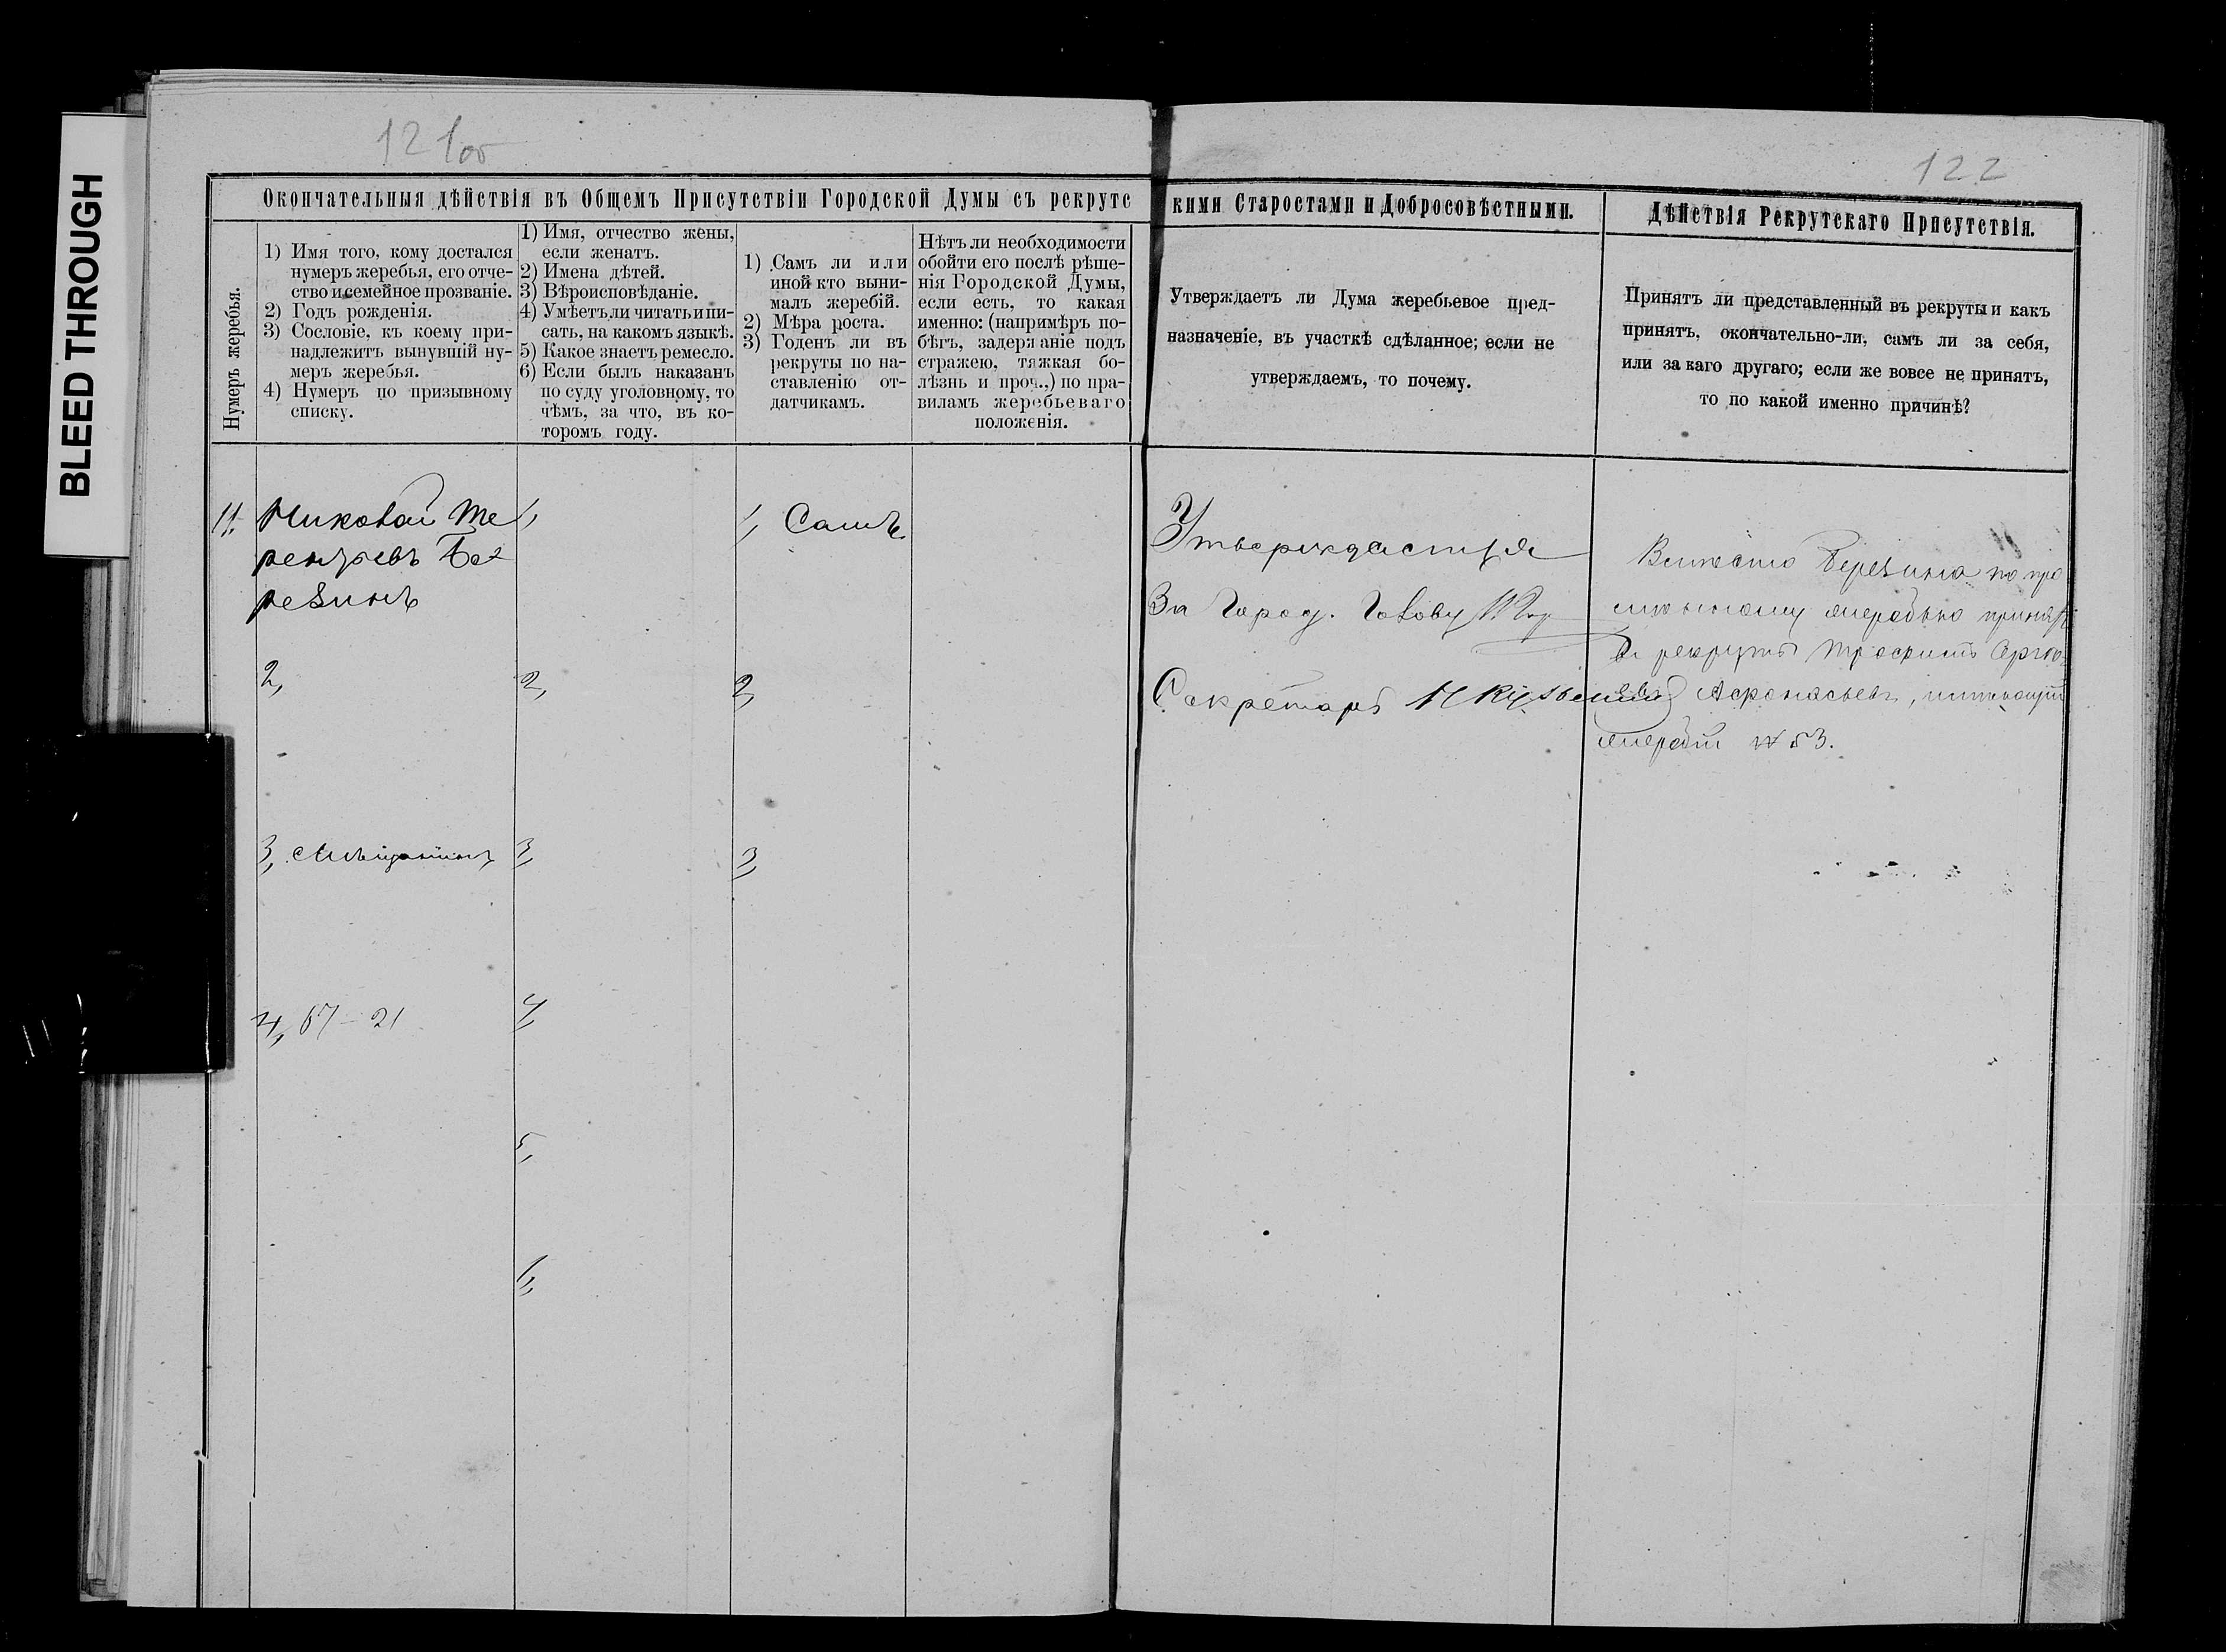 BLEED THROUGH
121об
122
Окончательныя дѣйствія въ Общемъ Присутствіи Городской Думы съ рекрутс
кими Старостами и Добросовѣстными.
Дѣйствія Рекрутскаго Присутствія.
Нумеръ жеребья.
1) Имя того, кому достался
нумеръ жеребья, его отче-
ство и семейное прозваніе.
2) Годъ рожденія.
3) Сословіе, къ коему при-
надлежитъ вынувшій ну-
меръ жеребья.
4) Нумеръ по призывному
списку.
1) Имя, отчество жены,
если женатъ.
2) Имена дѣтей.
3) Вѣроисповѣданіе.
4) Умѣетъ ли читать и пи-
сать, на какомъ языкѣ.
5) Какое знаетъ ремесло.
6) Если былъ наказанъ
по суду уголовному, то
чѣмъ, за что, въ ко-
торомъ году.
1) Самъ ли или
иной кто выни-
малъ жеребій.
2) Мѣра роста.
3) Годенъ ли въ
рекруты по на-
ставленію от-
датчикамъ.
Нѣтъ ли необходимости
обойти его послѣ рѣше-
нія Городской Думы,
если есть, то какая
именно: (напримѣръ по-
бѣгъ, задержаніе подъ
стражею, тяжкая бо-
лѣзнь и проч.,) по пра-
виламъ жеребьеваго
положенія.
Утверждаетъ ли Дума жеребьевое пред-
назначеніе, въ участкѣ сдѣланное; если не
утверждаемъ, то почему.
Принятъ ли представленный въ рекруты и какъ
принятъ, окончательно-ли, самъ ли за себя,
или за каго другаго; если же вовсе не принятъ,
то по какой именно причинѣ?
11. Николай Те
рентьевъ Бе
резинъ
2,
3, Мѣщанинъ
4, 67 - 21
1,
2,
3,
4,
5,
6,
1, Самъ
2,
3,
Утверждается
За Город. Голову
Секретарь
Вмѣсто Березина по
жеребью принятъ
въ рекруты
Афонасьевъ, имѣющій
жеребій № 53.